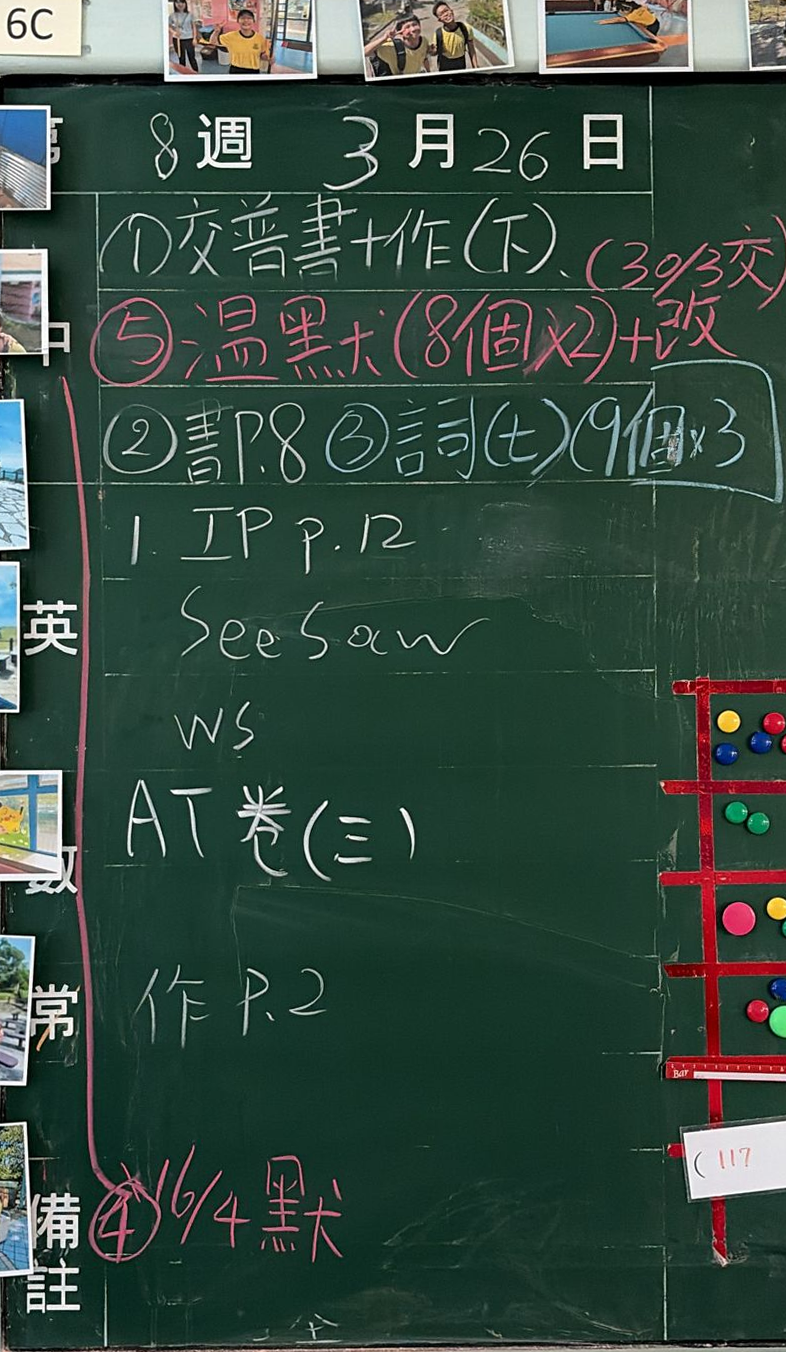 6C
8週 3月26日
①交普書+作(下)、(30/3交)
⑤温默(8個x2)+改
②書P.8 ③詞(七)(9個x3
1. IP p.12
英 SeeSaw
WS
數 AT卷(三)
常 作P.2
備註 ④16/4默
Bar
(117